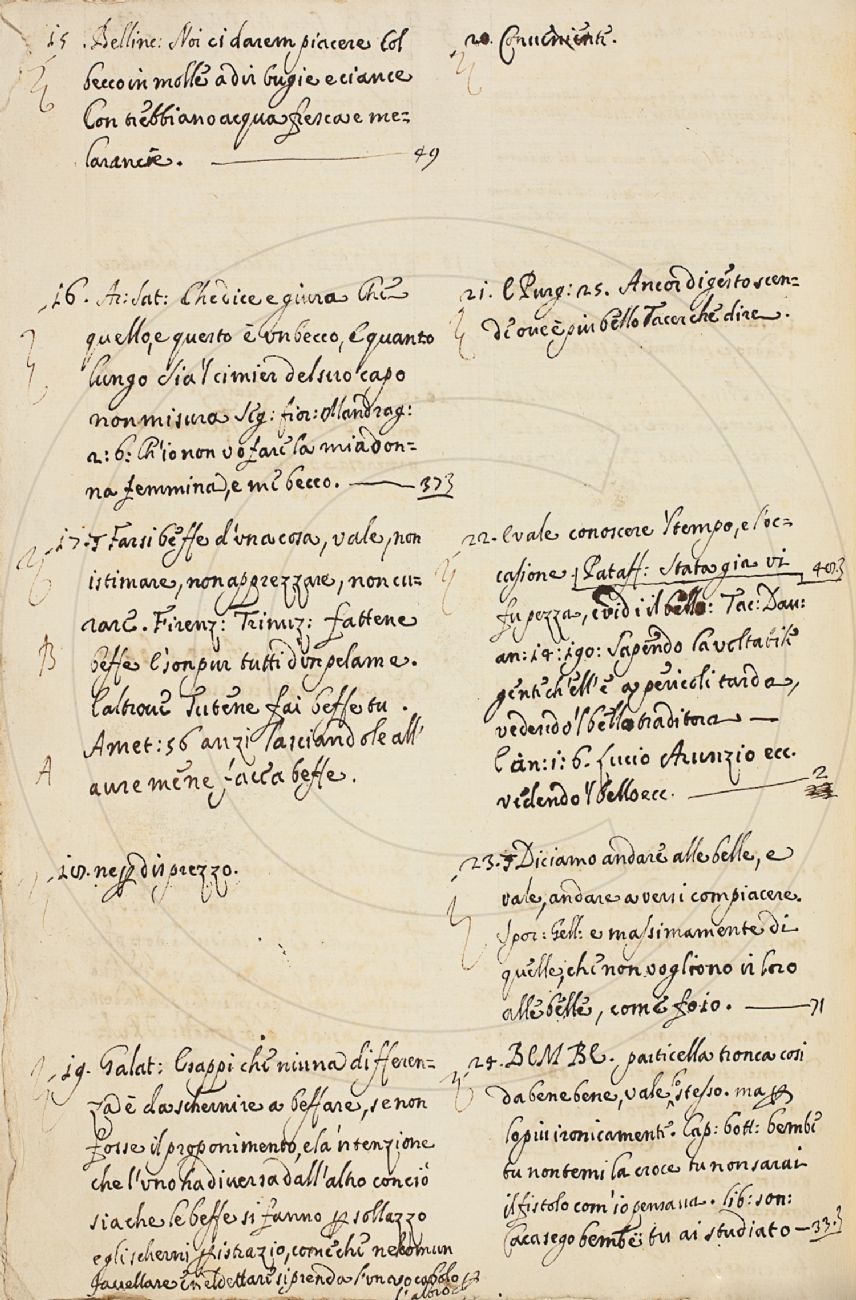 15. Bellinc: Noi ci darem piacere col
becco in molle a dir bugie e ciance
Con trebbiano acqua fresca e me=
larancie. 49
16. Ar: Sat: Che dice e giura che
quello, e questo è un becco, e quanto
lungo sia 'l cimier del suo capo
non misura Seg: fior: Mandrag:
2: 6: Ch'io non vo fare la mia don=
na femmina, e me becco. 373
17. Farsi beffe d'una cosa, vale, non
istimare, non apprezzare, non cu=
rare. Firenz: Trinuz: fattene
B beffe
l'altrove
Amet: 56 anzi lasciandole all'
A aure mene faccia beffe.
18. ne disprezzo.
19. Galat: E sappi che niuna differen=
za è da schernire a beffare, se non
fosse il proponimento, e la 'ntenzione
che l'uno ha diversa dall'altro conciò
sia che le beffe si fanno p sollazzo
e gli scherni p istrazio, come che nel comun
favellare e nel dettare si prenda l'uno vocabolo p
l'altro
20. Conveniente.
21. E Purg: 25. Ancor digesto scen=
de ove è più bello Tacer che dire.
22. E vale conoscere 'l tempo, e l'oc=
casione Pataff: Stata gia vi 403
fu pezza, e vidi il bello: Tac: Dav:
an: 14: 190: Sapendo la volta bile
gente ch'ell' è a pericoli tarda,
vedendo 'l bello traditora
E an: 1: 6. Lucio Arunzio ecc.
vedendo 'l bello ecc. 2
23. Diciamo andare alle belle, e
vale, andare a versi compiacere.
Spor: Gell: e massimamente di
quelle, che non vogliono ir loro
alle belle, come fo io. 71
24. BEM BE. particella tronca così
da bene bene, vale lo stesso. ma p
lo più ironicamente. Cap: bott: bembè
tu non temi la croce tu non sarai
il fistolo com'io pensava. lib: son:
Cacasego bembè tu ai studiato 33